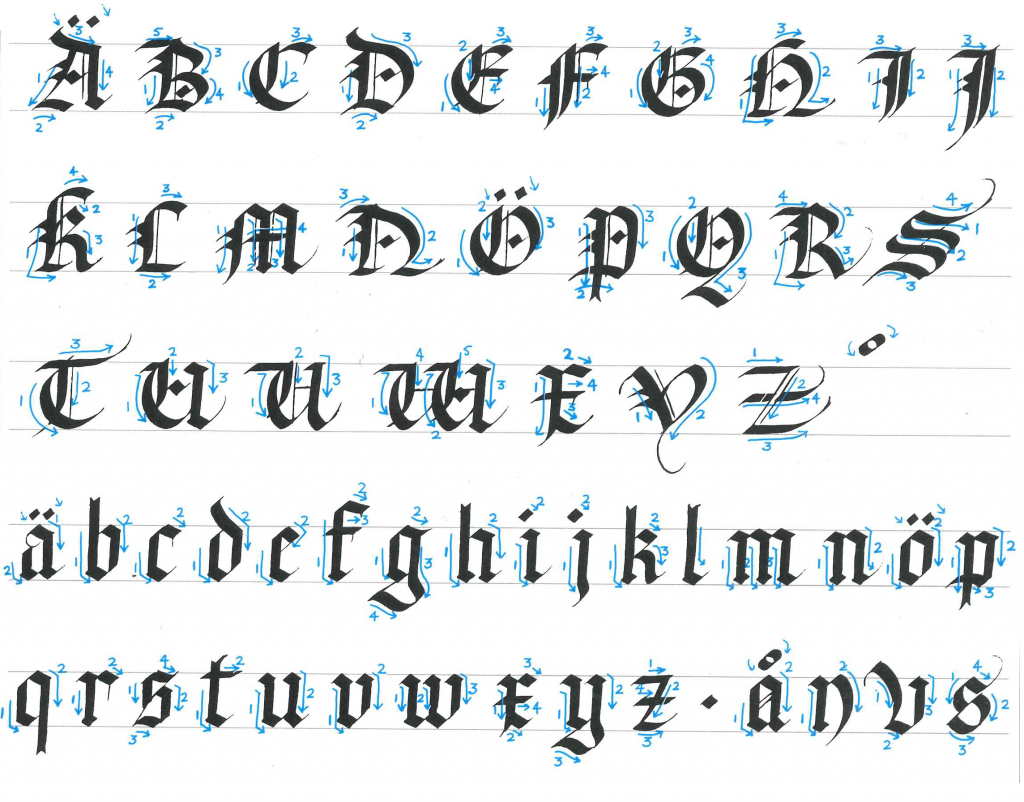 Ä B C D E F G H I J
K L M N Ö P Q R S
T U V W X Y Z
ä b c d e f g h i j k l m n ö p
q r s t u v w x y z · å n v s